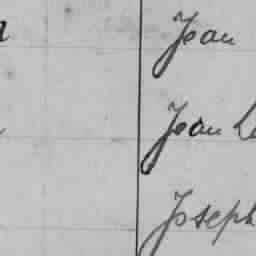 Jean
Jean
Joseph